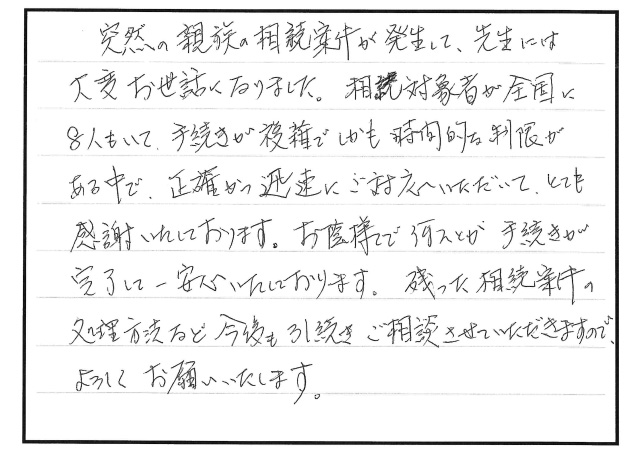 突然の親族の相続案件が発生して、先生には
大変お世話になりました。相続対象者が全国に
8人もいて、手続きが複雑でしかも時間的な制限が
ある中で、正確かつ迅速にご対応いただいて、とても
感謝いたしております。お陰様で何とか手続きが
完了して一安心いたしております。残った相続案件の
処理方法など今後も引続きご相談させていただきますので、
よろしくお願いいたします。